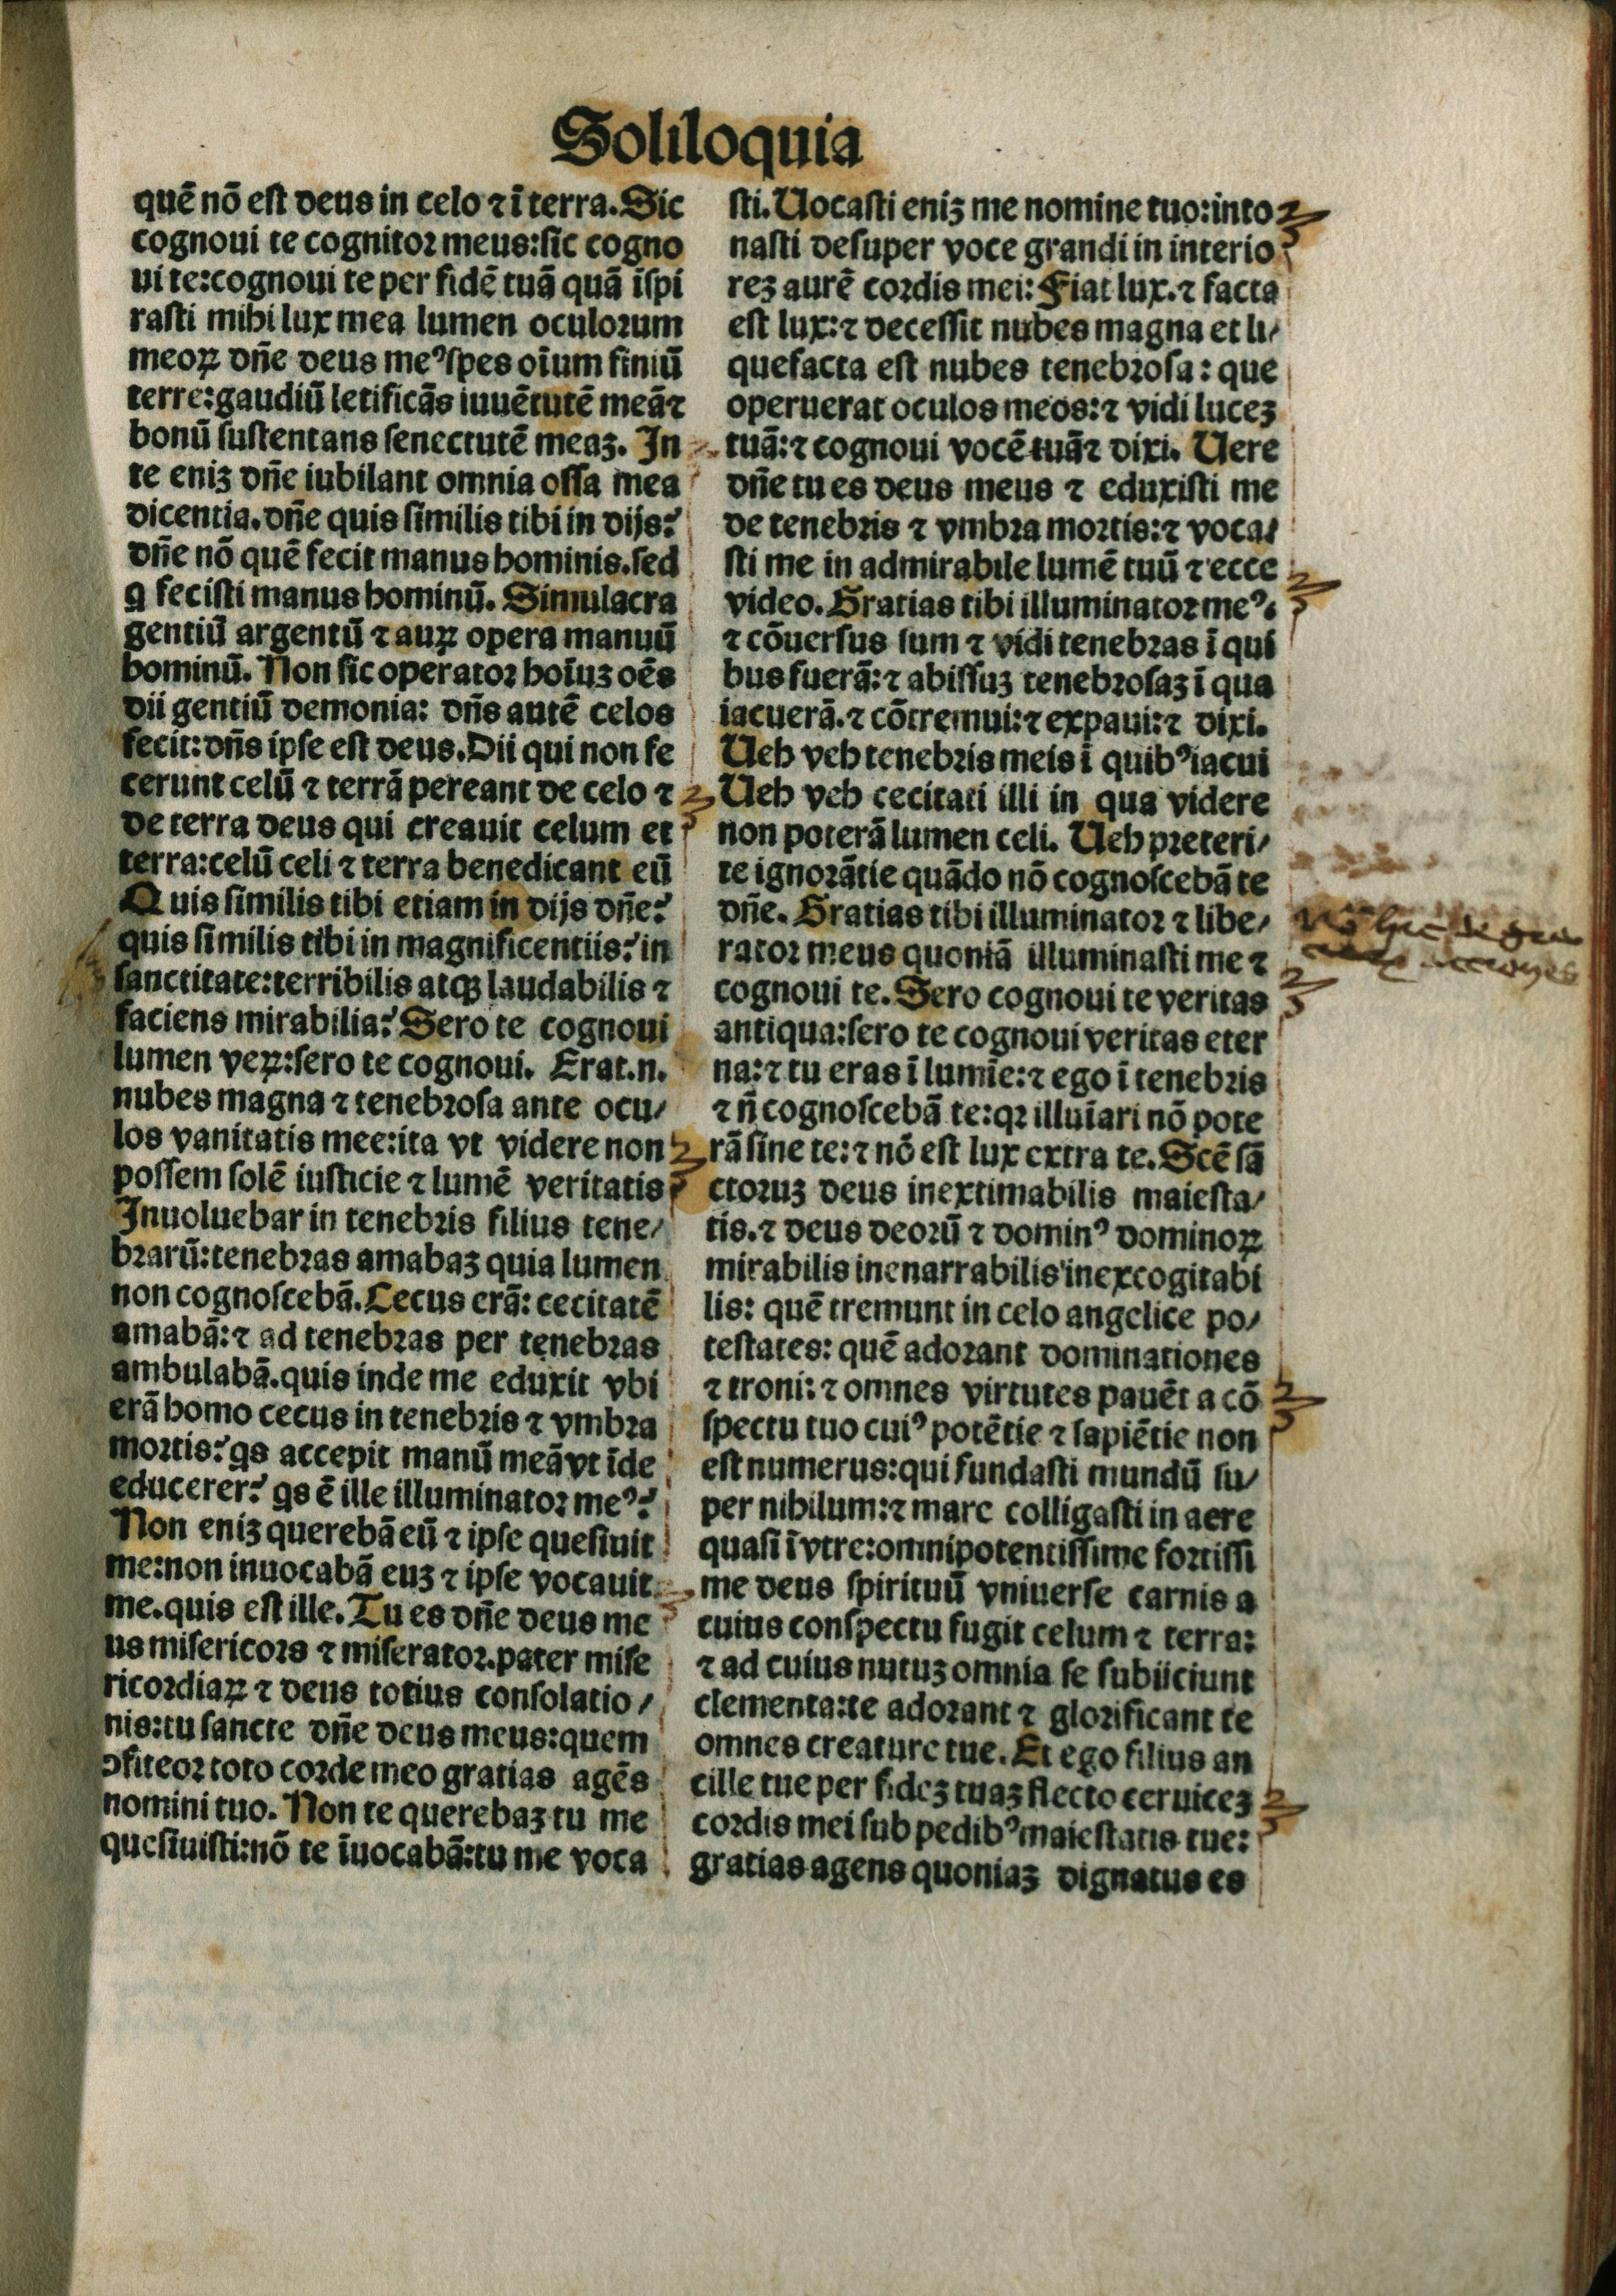 Soliloquia
quē nō est deus in celo ⁊ ī terra. Sic
cognoui te cognitor meus: sic cogno
ui te: cognoui te per fidē tuā quā īspi
rasti mihi lux mea lumen oculorum
meoꝝ dn̄e deus me⁹ spes oīum finiū
terre: gaudiū letificās iuuētutē meā ⁊
bonū sustentans senectutē meaꝫ. In
te eniꝫ dn̄e iubilant omnia ossa mea
dicentia. dn̄e quis similis tibi in dijs?
dn̄e nō quē fecit manus hominis. sed
q fecisti manus hominū. Simulacra
gentiū argentū ⁊ auꝝ opera manuū
hominū. Non sic operator hoīuꝫ oēs
dii gentiū demonia: dn̄s autē celos
fecit: dn̄s ipse est deus. Dii qui non fe
cerunt celū ⁊ terrā pereant de celo ⁊
de terra deus qui creauit celum et
terra: celū celi ⁊ terra benedicant eū
Quis similis tibi etiam in dijs dn̄e?
quis similis tibi in magnificentiis? in
sanctitate: terribilis atqꝫ laudabilis ⁊
faciens mirabilia? Sero te cognoui
lumen veꝝ: sero te cognoui. Erat .n.
nubes magna ⁊ tenebrosa ante ocu/
los vanitatis mee: ita vt videre non
possem solē iusticie ⁊ lumē veritatis
Inuoluebar in tenebris filius tene/
brarū: tenebras amabaꝫ quia lumen
non cognoscebā. Cecus erā: cecitatē
amabā: ⁊ ad tenebras per tenebras
ambulabā. quis inde me eduxit vbi
erā homo cecus in tenebris ⁊ vmbra
mortis? qs accepit manū meā vt īde
educerer? qs ē ille illuminator me⁹?
Non eniꝫ querebā eū ⁊ ipse quesiuit
me: non inuocabā euꝫ ⁊ ipse vocauit
me. quis est ille. Tu es dn̄e deus me
us misericors ⁊ miserator. pater mise
ricordiaꝝ ⁊ deus totius consolatio/
nis: tu sancte dn̄e deus meus: quem
ꝯfiteor toto corde meo gratias agēs
nomini tuo. Non te querebaꝫ tu me
quesiuisti: nō te īuocabā: tu me voca
sti. Uocasti eniꝫ me nomine tuo: into
nasti desuper voce grandi in interio
reꝫ aurē cordis mei: Fiat lux. ⁊ facta
est lux: ⁊ decessit nubes magna et li/
quefacta est nubes tenebrosa: que
operuerat oculos meos: ⁊ vidi luceꝫ
tuā: ⁊ cognoui vocē tuā ⁊ dixi. Uere
dn̄e tu es deus meus ⁊ eduxisti me
de tenebris ⁊ vmbra mortis: ⁊ voca/
sti me in admirabile lumē tuū ⁊ ecce
video. Gratias tibi illuminator me⁹.
⁊ cōuersus sum ⁊ vidi tenebras ī qui
bus fuerā: ⁊ abissuꝫ tenebrosaꝫ ī qua
iacuerā. ⁊ cōtremui: ⁊ expaui: ⁊ dixi.
Ueh veh tenebris meis ī quib⁹ iacui
Ueh veh cecitati illi in qua videre
non poterā lumen celi. Ueh preteri/
te ignorātie quādo nō cognoscebā te
dn̄e. Gratias tibi illuminator ⁊ libe/
rator meus quoniā illuminasti me ⁊
cognoui te. Sero cognoui te veritas
antiqua: sero te cognoui veritas eter
na: ⁊ tu eras ī lumīe: ⁊ ego ī tenebris
⁊ n̄ cognoscebā te: qꝛ illuīari nō pote
rā sine te: ⁊ nō est lux extra te. Scē sā
ctoruꝫ deus inextimabilis maiesta/
tis. ⁊ deus deorū ⁊ domin⁹ dominoꝝ
mirabilis inenarrabilis inexcogitabi
lis: quē tremunt in celo angelice po/
testates: quē adorant dominationes
⁊ troni: ⁊ omnes virtutes pauēt a cō
spectu tuo cui⁹ potētie ⁊ sapiētie non
est numerus: qui fundasti mundū su/
per nihilum: ⁊ mare colligasti in aere
quasi ī vtre: omnipotentissime fortissi
me deus spirituū vniuerse carnis a
cuius conspectu fugit celum ⁊ terra:
⁊ ad cuius nutuꝫ omnia se subiiciunt
elementa: te adorant ⁊ glorificant te
omnes creature tue. Et ego filius an
cille tue per fideꝫ tuaꝫ flecto ceruiceꝫ
cordis mei sub pedib⁹ maiestatis tue:
gratias agens quoniaꝫ dignatus es